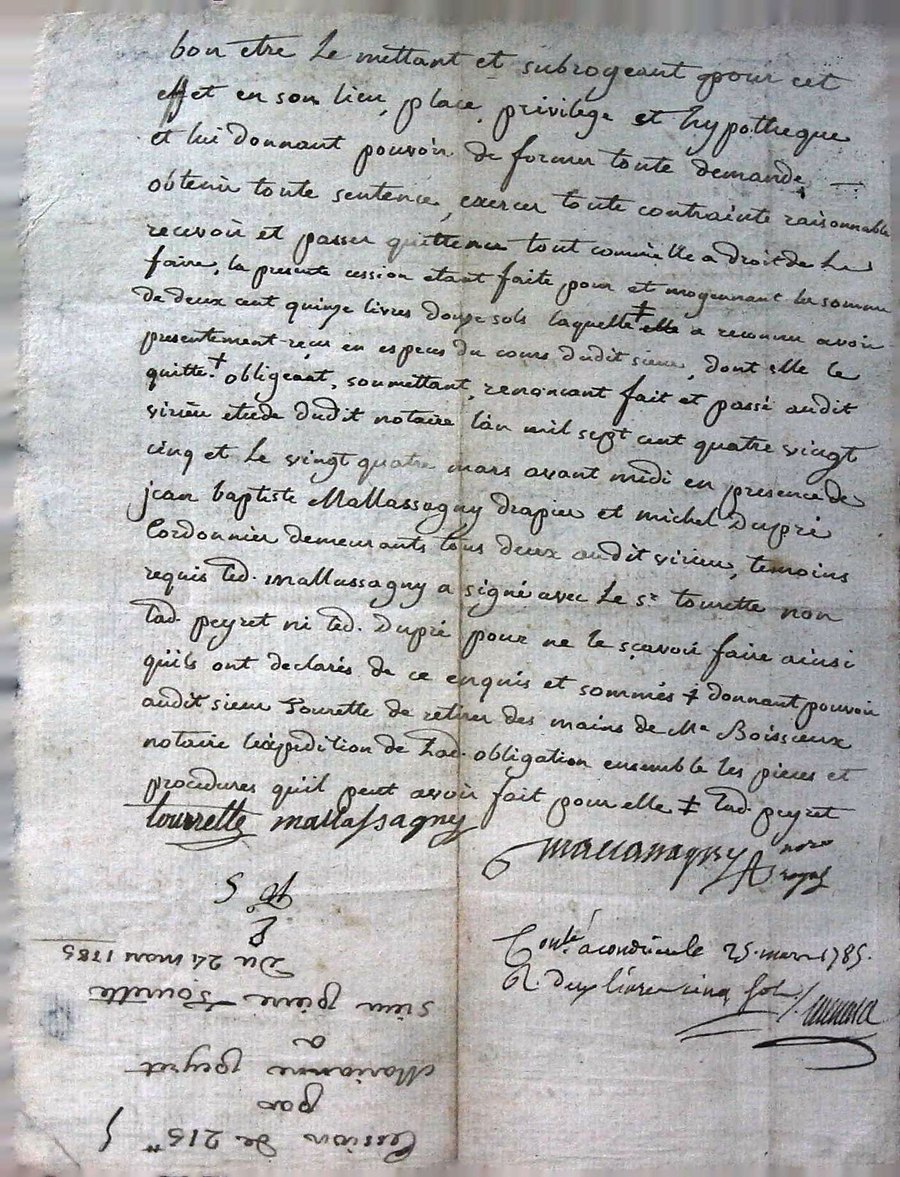 bon etre le mettant et subrogeant pour cet
effet en son lieu, place, privilege et hypotheque
et lui donnant pouvoir de former toute demande,
obtenir toute sentence, exercer toute contrainte raisonnable
recevoir et passer quittence tout comme elle a droit de le
faire, la presente cession etant faite pour et moyennant la somme
de deux cent quinze livres douze sols laquelle ‡ elle a reconnu avoir
presentement reçue en especes du cours dudit sieur, dont elle le
quitte. + obligeant, soumettant, renonçant fait et passé audit
virieu etude dudit notaire l'an mil sept cent quatre vingt
cinq et le vingt quatre mars avant midi en presence de
jean baptiste Mallassagny drapier et michel Dupré
Cordonnier demeurants tous deux audit virieu, temoins
requis led. mallassagny a signé avec le sr. tourette non
lad. peyret ni led. Dupré pour ne le sçavoir faire ainsi
qu'ils ont declarés de ce enquis et sommés ‡ donnant pouvoir
audit sieur Tourette de retirer des mains de Me Boissieux
notaire l'expedition de lad. obligation ensemble les pieces et
procedures qu'il peut avoir fait pour elle ‡ lad. peyret
tourrette mallassagny
nore
royal
Conlé a condrieu le 25. mars 1785.
R. deux livres cinq sols
Cession de 215tt
par
Marianne peyret
a
sieur pierre Tourette
Du 24 mars 1785